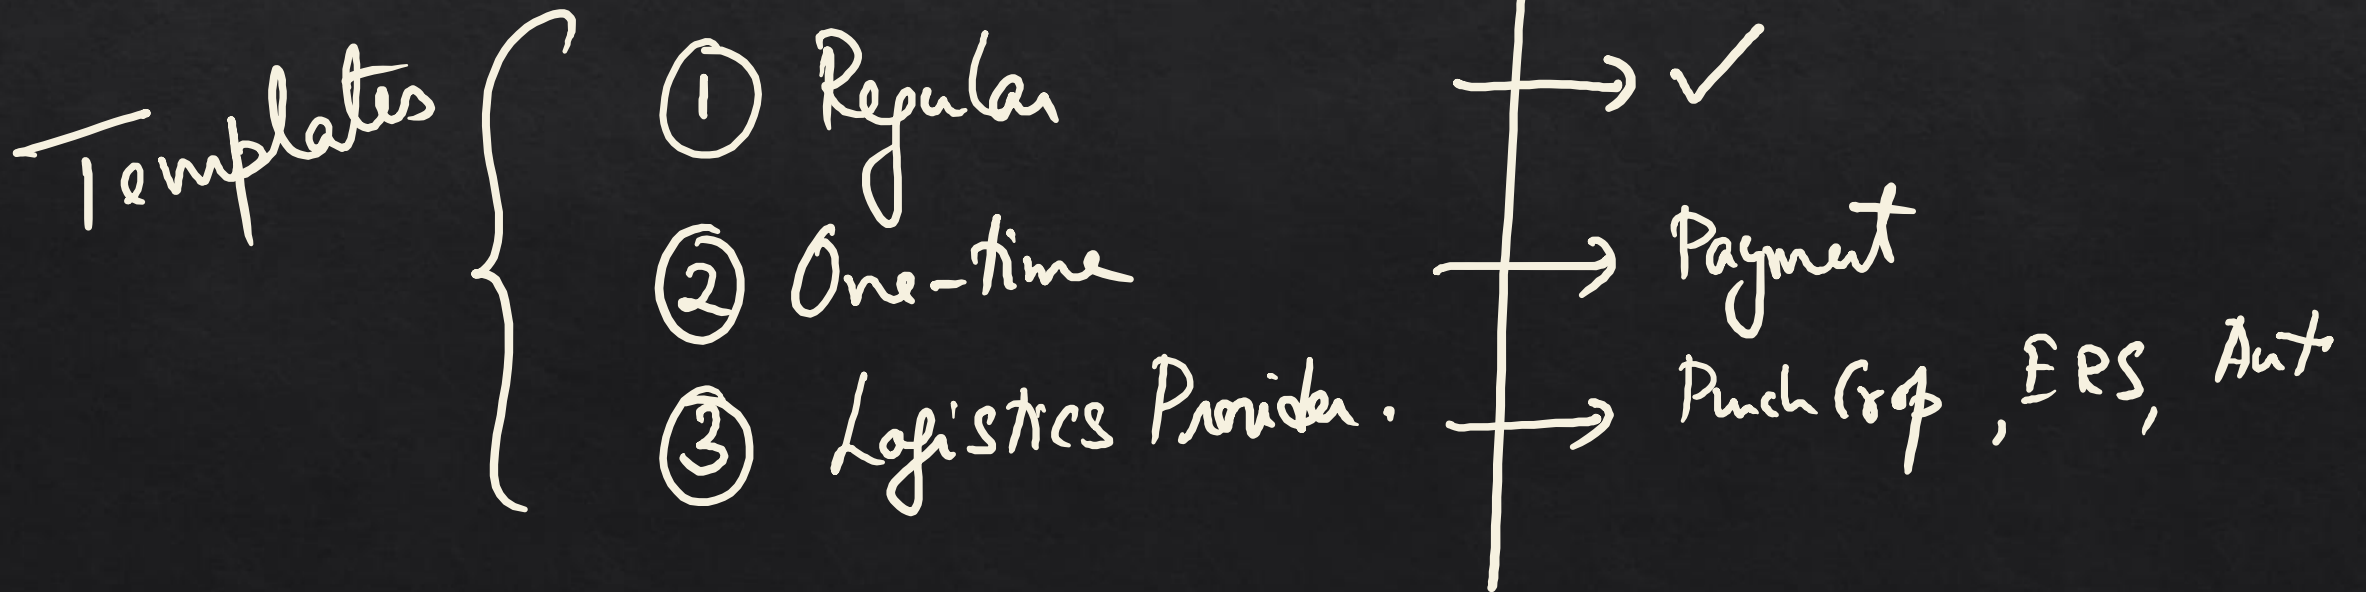 Templates
① Regular → ✓
② One-time → Payment
③ Logistics Provider. → Purch Grp, ERS, Aut